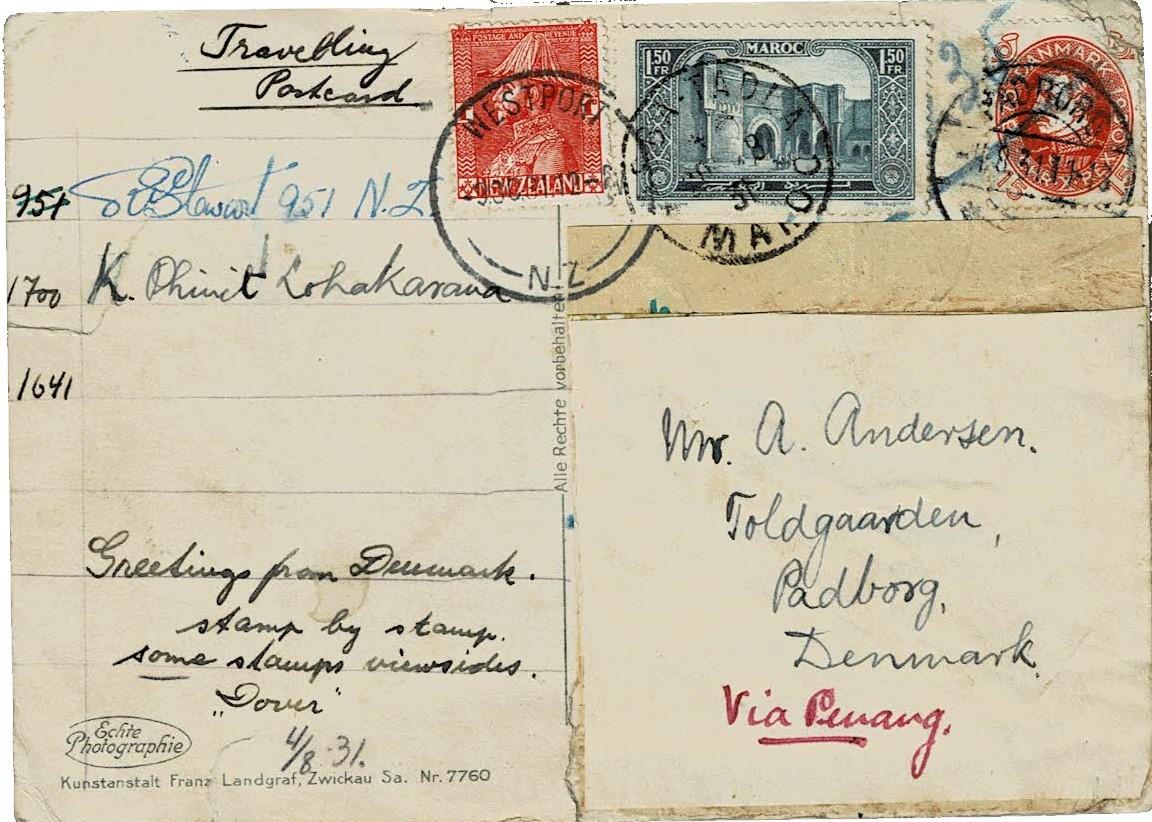 Travelling
Postcard
951 Stewart 951 N.Z.
1700 K. Phinit Lohakarava
1641
Greetings from Denmark.
stamp by stamp.
some stamps viewsides.
„Dover"
4/8-31.
Echte
Photographie
Kunstanstalt Franz Landgraf, Zwickau Sa. Nr. 7760
Alle Rechte vorbehalten
POSTAGE AND REVENUE
NEW ZEALAND
WESTPORT
N.Z
MAROC
1.50 FR
1.50 FR
TADLA
MAROC
DANMARK
15
15
Mr. A. Andersen.
Toldgaarden,
Padborg,
Denmark.
Via Penang.